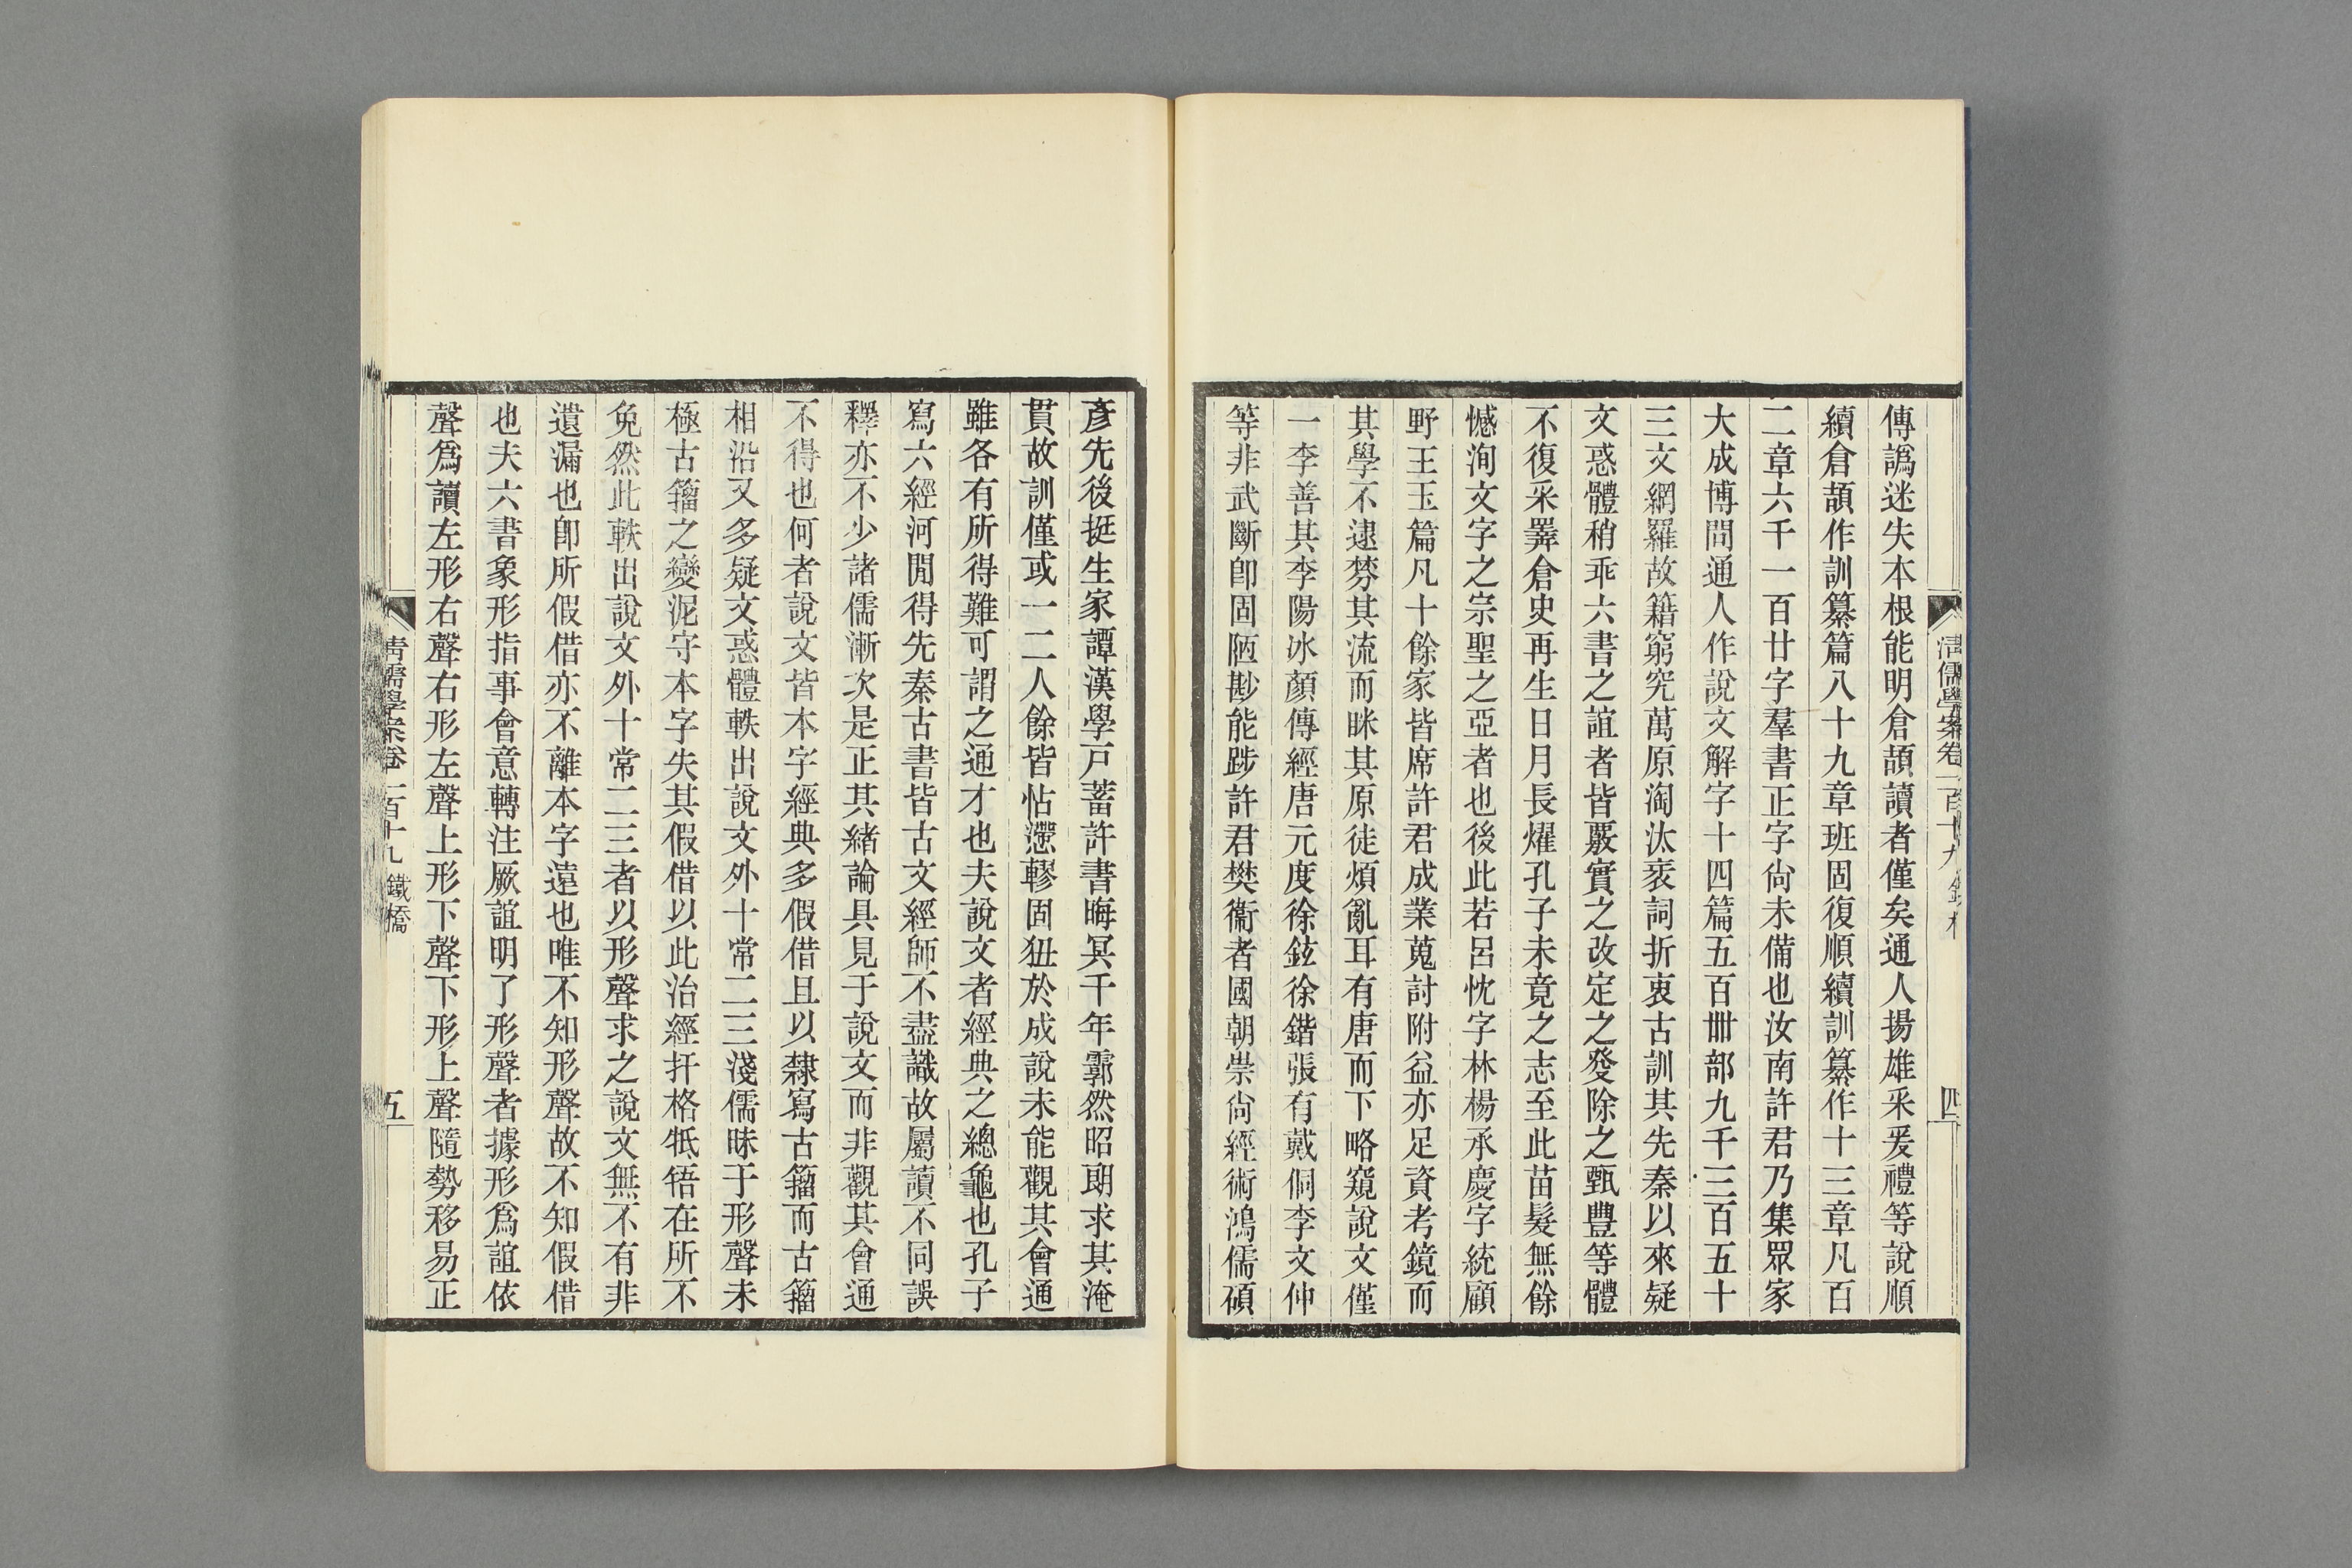 清儒學案卷一百十九
四
傳譌迷失本根能明倉頡讀者僅矣通人揚雄采爰禮等說順
續倉頡作訓纂篇八十九章班固復順續訓纂作十三章凡百
二章六千一百廿字羣書正字尙未備也汝南許君乃集眾家
大成博問通人作說文解字十四篇五百卌部九千三百五十
三文網羅故籍窮究萬原淘汰衺詞折衷古訓其先秦以來疑
文惑體稍乖六書之誼者皆覈實之改定之發除之甄豐等體
不復采羼倉史再生日月長燿孔子未竟之志至此苗髮無餘
憾洵文字之宗聖之亞者也後此若呂忱字林楊承慶字統顧
野王玉篇凡十餘家皆席許君成業蒐討附益亦足資考鏡而
其學不逮棼其流而眯其原徒煩亂耳有唐而下略窺說文僅
一李善其李陽冰顏傳經唐元度徐鉉徐鍇張有戴侗李文仲
等非武斷卽固陋尠能跂許君樊衞者國朝崇尙經術鴻儒碩
彥先後挺生家譚漢學戸蓄許書晦冥千年霩然昭朖求其淹
貫故訓僅或一二人餘皆怗懘轇固狃於成說未能觀其會通
雖各有所得難可謂之通才也夫說文者經典之總龜也孔子
寫六經河閒得先秦古書皆古文經師不盡識故屬讀不同誤
釋亦不少諸儒漸次是正其緒論具見于說文而非觀其會通
不得也何者說文皆本字經典多假借且以隸寫古籀而古籀
相沿又多疑文惑體軼出說文外十常二三淺儒昧于形聲未
極古籀之變泥守本字失其假借以此治經扞格牴牾在所不
免然此軼出說文外十常二三者以形聲求之說文無不有非
遺漏也卽所假借亦不離本字遠也唯不知形聲故不知假借
也夫六書象形指事會意轉注厥誼明了形聲者據形爲誼依
聲爲讀左形右聲右形左聲上形下聲下形上聲隨勢移易正
清儒學案卷一百十九 鐵橋
五